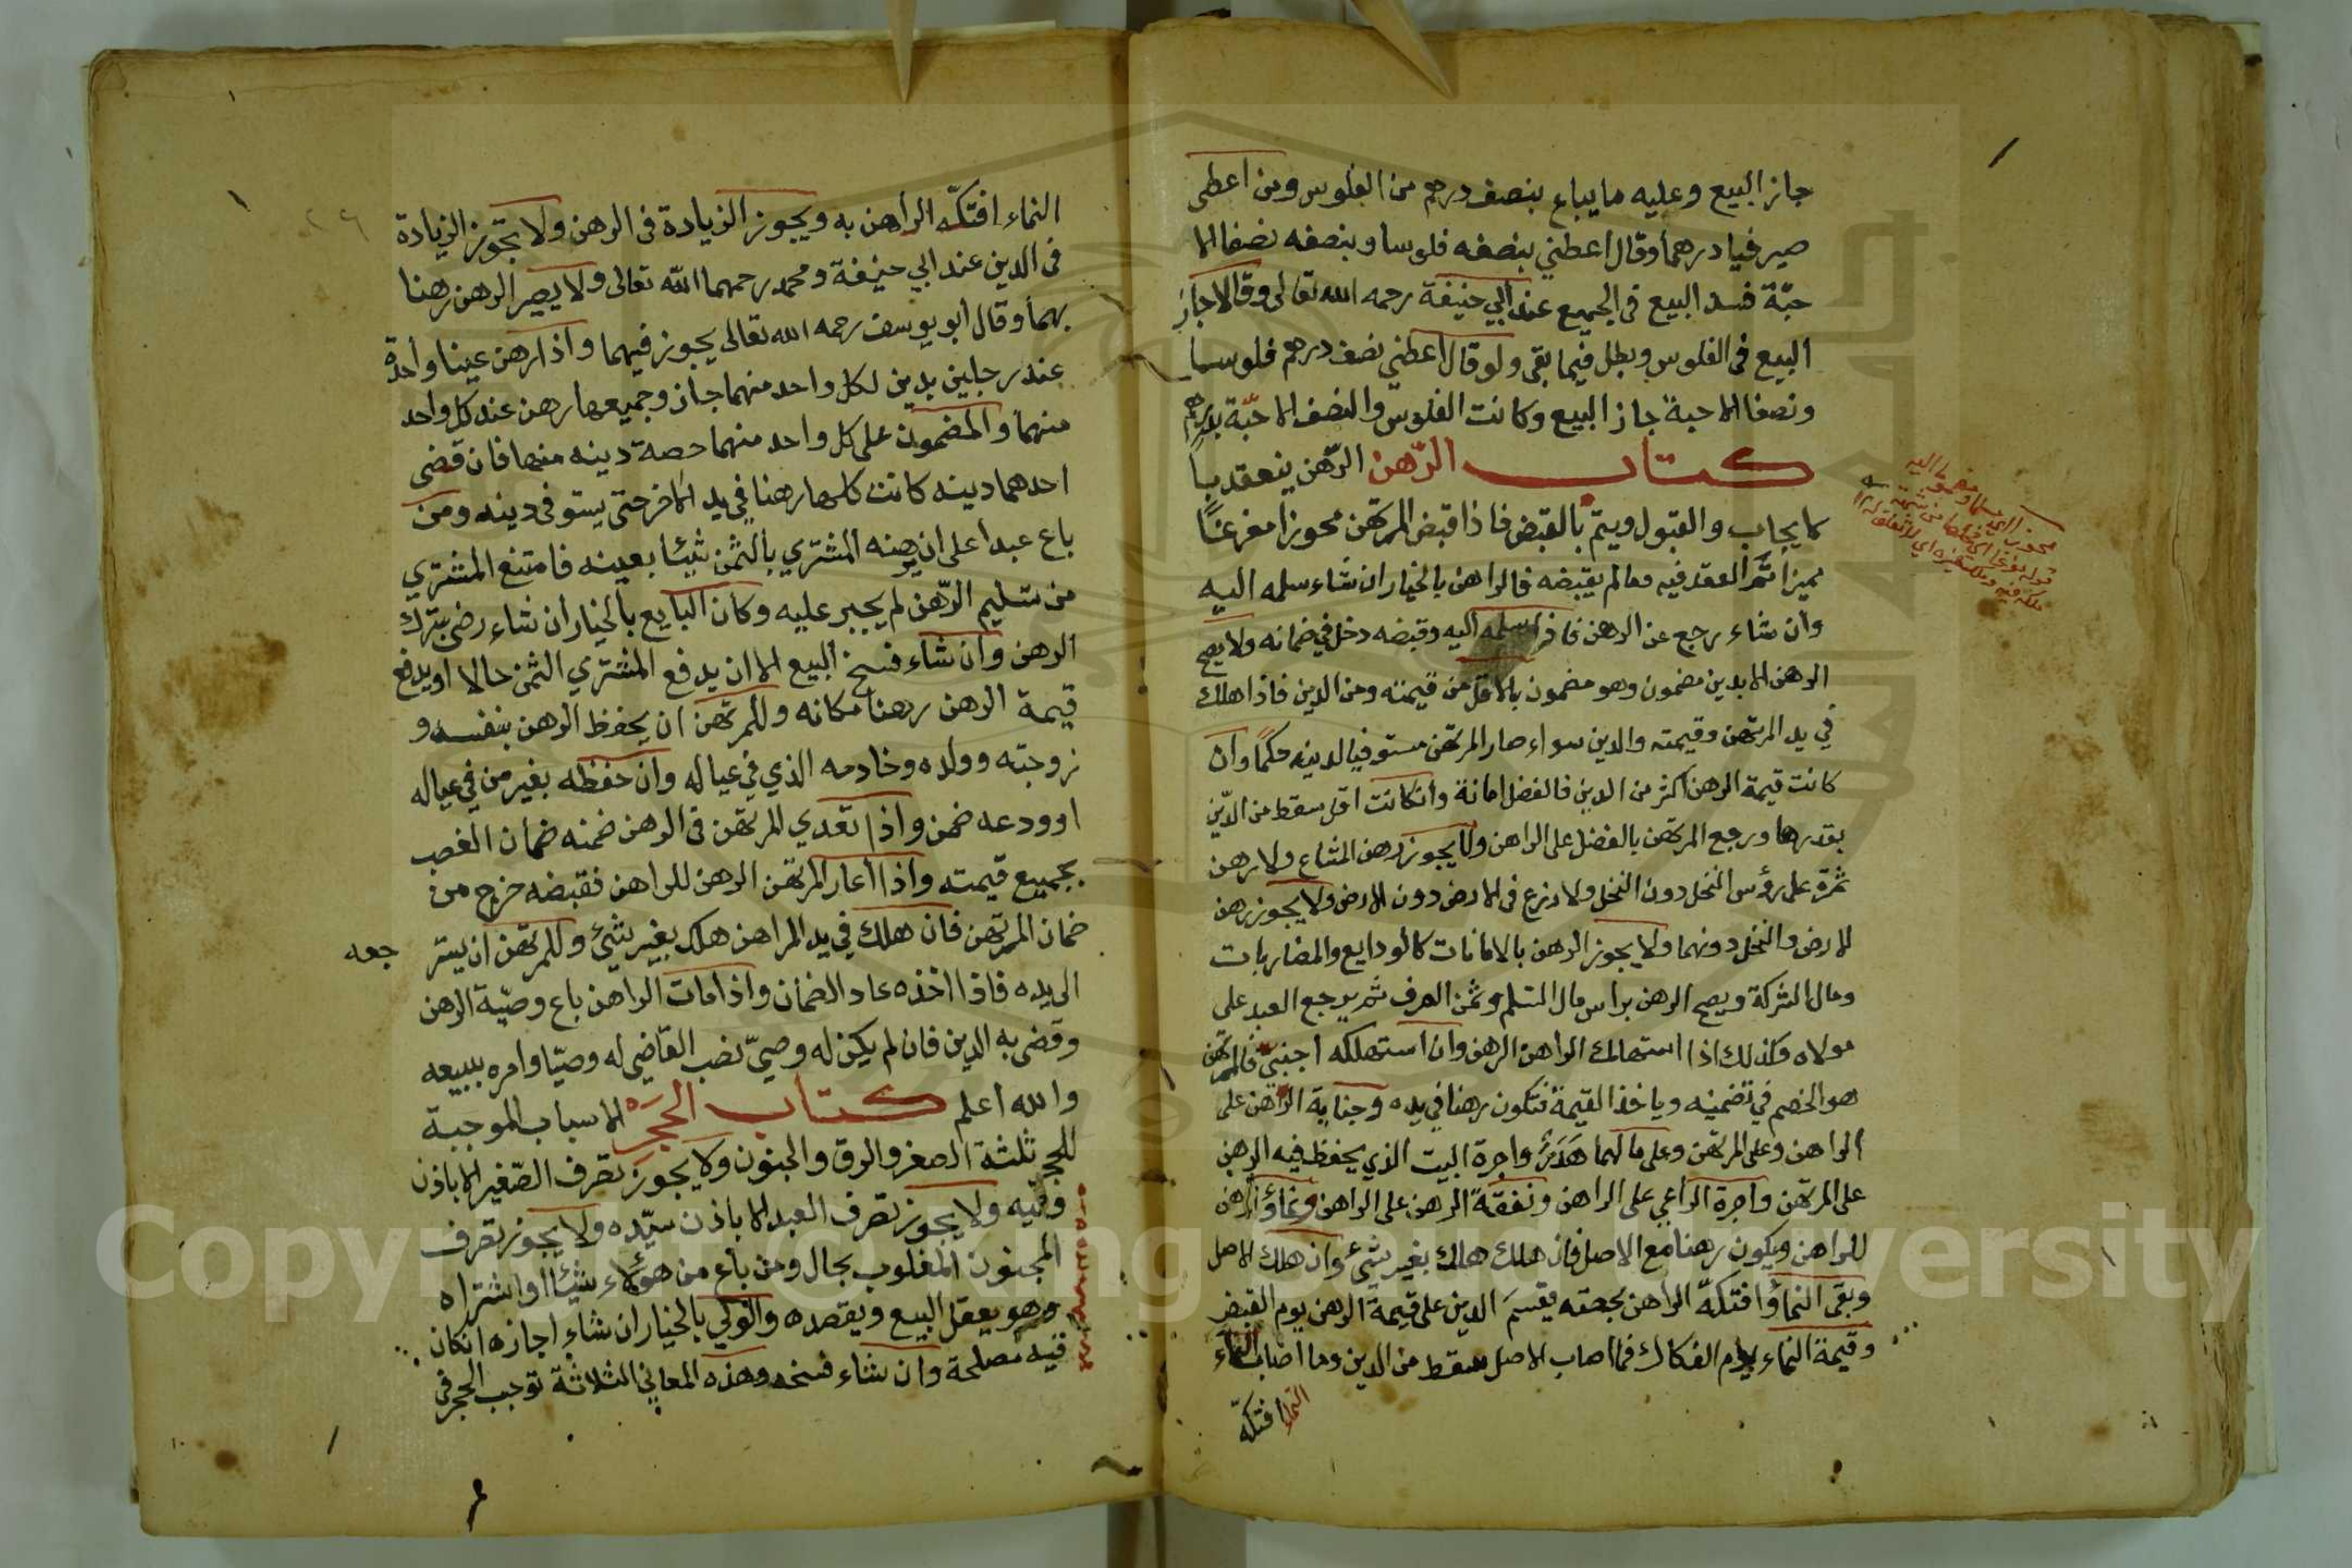 جاز البيع وعليه ما يباع بنصف درهم من الفلوس ومن اعطى
صيرفيا درهما وقال اعطني بنصفه فلوسا وبنصفه نصفا الا
حبّة فسد البيع في الجميع عند ابي حنيفة رحمه الله تعالى وقالا جاز
البيع في الفلوس وبطل فيما بقى ولو قال اعطني نصف درهم فلوسا
ونصفا الا حبة جاز البيع وكانت الفلوس والنصف الا حبّة بدرهم
كتاب الرّهن الرّهن ينعقد بـا
لايجاب والقبول ويتم بالقبض فاذا قبض المرتهن محوزا مفرغا
مميزا تمّ العقد فيه ومالم يقبضه فالراهن بالخيار ان شاء سلمه اليه
وان شاء رجع عن الرهن فاذا سلمه اليه وقبضه دخل في ضمانه ولا يصح
الرهن الا بدين مضمون وهو مضمون بالاقل من قيمته ومن الدين فاذا هلك
في يد المرتهن وقيمته والدين سواء صار المرتهن مستوفيا لدينه حكمًا وان
كانت قيمة الرهن اكثر من الدين فالفضل امانة وانكانت اقل سقط من الدّين
بقدرها ورجع المرتهن بالفضل على الراهن ولا يجوز رهن المشاع ولا رهن
ثمرة على رؤس النخل دون النخل ولا زرع في الارض دون الارض ولا يجوز رهن
الارض والنخل دونهما ولا يجوز الرهن بالامانات كالودايع والمضاربات
ومال الشركة ويصح الرهن براس مال السّلم وثمن الصرف ثم يرجع العبد على
مولاه وكذلك اذا استهلك الراهن الرهن وان استهلكه اجنبيّ فالمرتهن
هو الخصم في تضمينه وياخذ القيمة فتكون رهنا في يده وجناية الرّاهن على
الراهن وعلى المرتهن وعلى مالهما هَدَرٌ واجرة البيت الذي يحفظ فيه الرهن
على المرتهن واجرة الراعي على الراهن ونفقة الرهن على الراهن ونماؤه
للراهن ويكون رهنا مع الاصل فان هلك هلك بغير شيء وان هلك الاصل
وبقى النماء افتكّه الراهن بحصته يقسم الدين على قيمة الرهن يوم القبض
وقيمة النماء يوم الفكاك فما اصاب الاصل سقط من الدين وما اصاب النماء
النماء افتكّه
النماء افتكّه الراهن به ويجوز الزيادة في الرهن ولا تجوز الزيادة
في الدين عند ابي حنيفة ومحمد رحمهما الله تعالى ولا يصير الرهن رهنا
بهما وقال ابو يوسف رحمه الله تعالى يجوز فيهما واذا رهن عينا واحدة
عند رجلين بدين لكل واحد منهما جاز وجميعها رهن عند كل واحد
منهما والمضمون على كل واحد منهما حصة دينه منها فان قضى
احدهما دينه كانت كلها رهنا في يد الاخر حتى يستوفى دينه ومن
باع عبدا على ان يرهنه المشتري بالثمن شيئا بعينه فامتنع المشتري
من تسليم الرّهن لم يجبر عليه وكان البايع بالخيار ان شاء رضى بترك
الرهن وان شاء فسخ البيع الا ان يدفع المشتري الثمن حالا او يدفع
قيمة الرهن رهنا مكانه وللمرتهن ان يحفظ الرهن بنفسه و
زوجته وولده وخادمه الذي في عياله وان حفظه بغير من في عياله
او ودعه ضمن واذا تعدي المرتهن في الرهن ضمنه ضمان الغصب
بجميع قيمته واذا اعار المرتهن الرهن للراهن فقبضه خرج من
ضمان المرتهن فان هلك في يد الراهن هلك بغير شيء وللمرتهن ان يستر جعه
الى يده فاذا اخذه عاد الضمان واذا مات الراهن باع وصيّه الرهن
وقضى به الدين فان لم يكن له وصيّ نصب القاضي له وصيّا وامره ببيعه
والله اعلم كتاب الحجر الاسباب الموجبة
للحجر ثلثة الصغر والرق والجنون ولا يجوز تصرف الصّغير الا باذن
وليّه ولا يجوز تصرف العبد الا باذن سيّده ولا يجوز تصرف
المجنون المغلوب بحال ومن باع من هؤلاء شيئا او اشتراه
وهو يعقل البيع ويقصده والولي بالخيار ان شاء اجازه انكان
فيه مصلحة وان شاء فسخه وهذه المعاني الثلاثة توجب الحجر في
Copyright © King Saud University